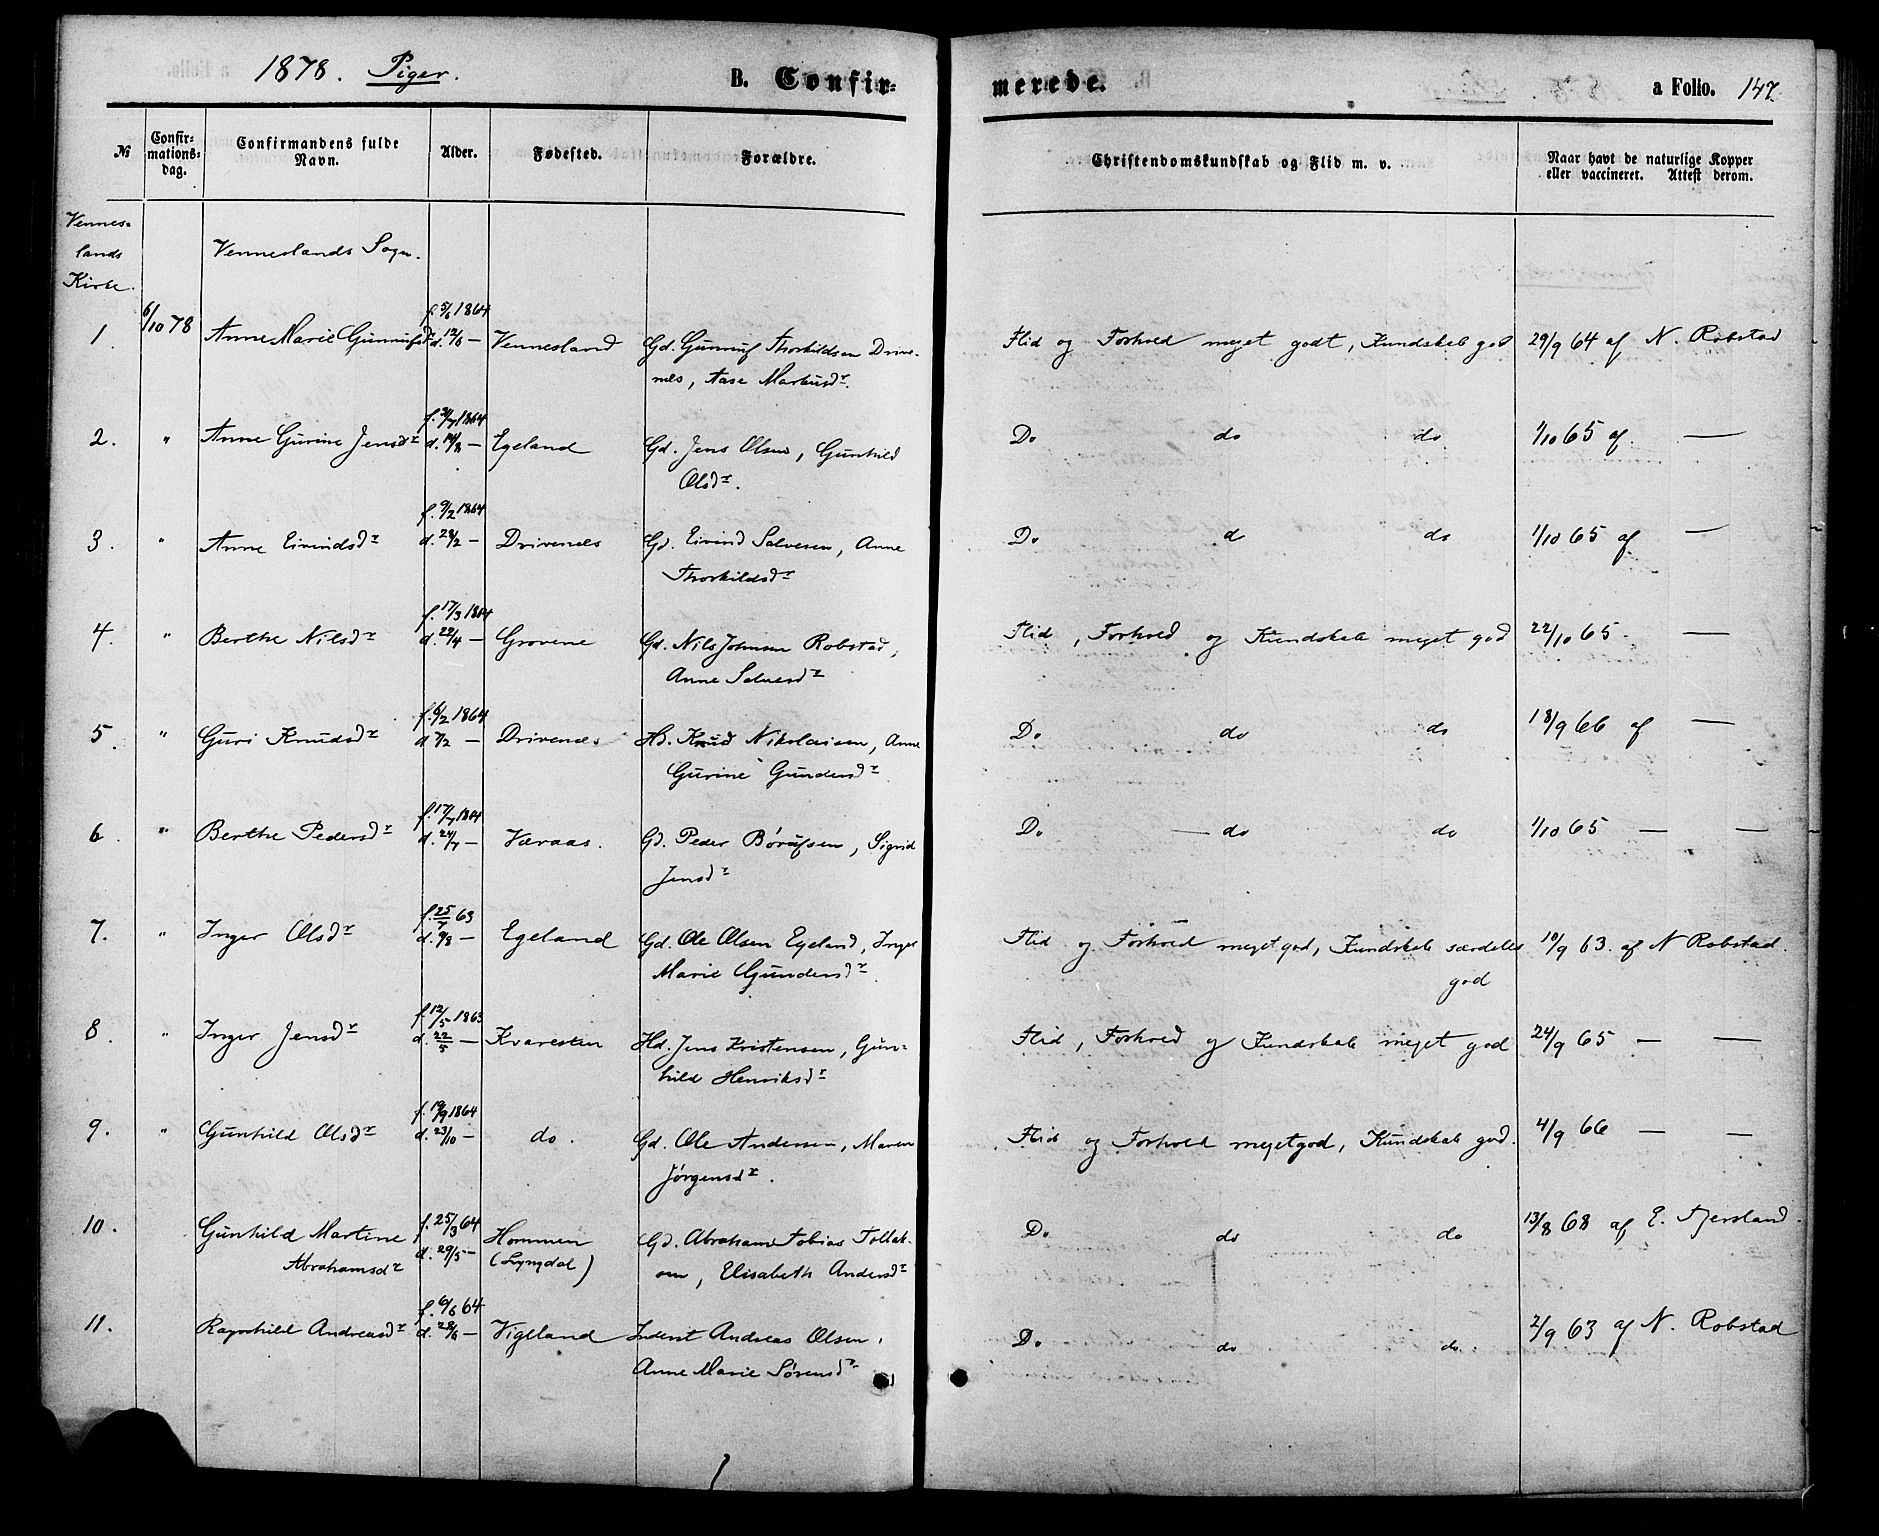 1878. Piger.
B. Confir-
merede.
a Folio. 147.
№
Confir-
mations-
dag.
Confirmandens fulde
Navn.
Alder.
Fødested.
Forældre.
Christendomskundskab og Flid m. v.
Naar havt de naturlige Kopper
eller vaccineret. Attest derom.
Vennes-
lands
Kirke.
Venneslands Sogn.
1. 6/10 78 Anne Marie Gunnufsdr f. 5/6 1864 d. 12/6 — Vennesland Gd. Gunnuf Thorkildsen Drive-
nes, Aase Markusdr.
Flid og Forhold meget godt, Kundskab god 29/9 64 af N. Robstad
2. " Anne Gurine Jensdr 1864 d. 14/8 — Egeland Gd. Jens Olsen, Gunhild
Olsdr.
Do do do 1/10 65 af —
3. " Anne Eivindsdr f. 9/2 1864 d. 28/2 — Drivenes Gd. Eivind Salvesen, Anne
Thorkildsdr
Do do do 1/10 65 af —
4. " Berthe Nilsdr f. 17/3 1864 d. 22/4 — Grovene Gd. Nils Johnsen Robstad,
Anne Salvesdr
Flid, Forhold og Kundskab meget god 22/10 65. —
5. " Guri Knudsdr f. 6/2 1864 d. 7/2 — Drivenes Hd. Knud Nikolaisen, Anne
Gurine Gundersdr
Do do do 18/9 66 af —
6. " Berthe Pedersdr f. 17/7 1864 d. 24/7 — Væraas. Gd. Peder Børufsen, Sigrid
Jensdr
Do — do do 1/10 65 — —
7. " Inger Olsdr f. 25/7 63 d. 9/8 — Egeland Gd. Ole Olsen Egeland, Inger
Marie Gundersdr.
Flid og Forhold meget god, Kundskab særdeles
god
10/9 63. af N Robstad.
8. " Inger Jensdr f. 12/5 1863 d. 22/5 — Kvaresten Hd. Jens Kristensen, Gun-
hild Henriksdr
Flid, Forhold og Kundskab meget god 24/9 65 — —
9. " Gunhild Olsdr f. 19/9 1864 d. 23/10 — do. Gd. Ole Andersen, Maren
Jørgensdr.
Flid og Forhold meget god, Kundskab god. 4/9 66 — —
10. Gunhild Martine
Abrahamsdr
f. 25/3 64 d. 29/5 — Hommen
(Lyngdal)
Gd. Abraham Tobias Tollak-
sen, Elisabeth Andersdr
Do do do 13/8 68 af E. Fjersland.
11. Ragnhild Andreasdr f. 6/6 64 d. 28/6 — Vigeland Inderst Andreas Olsen,
Anne Marie Sørensdr
Do do do. 2/9 63 af N. Robstad